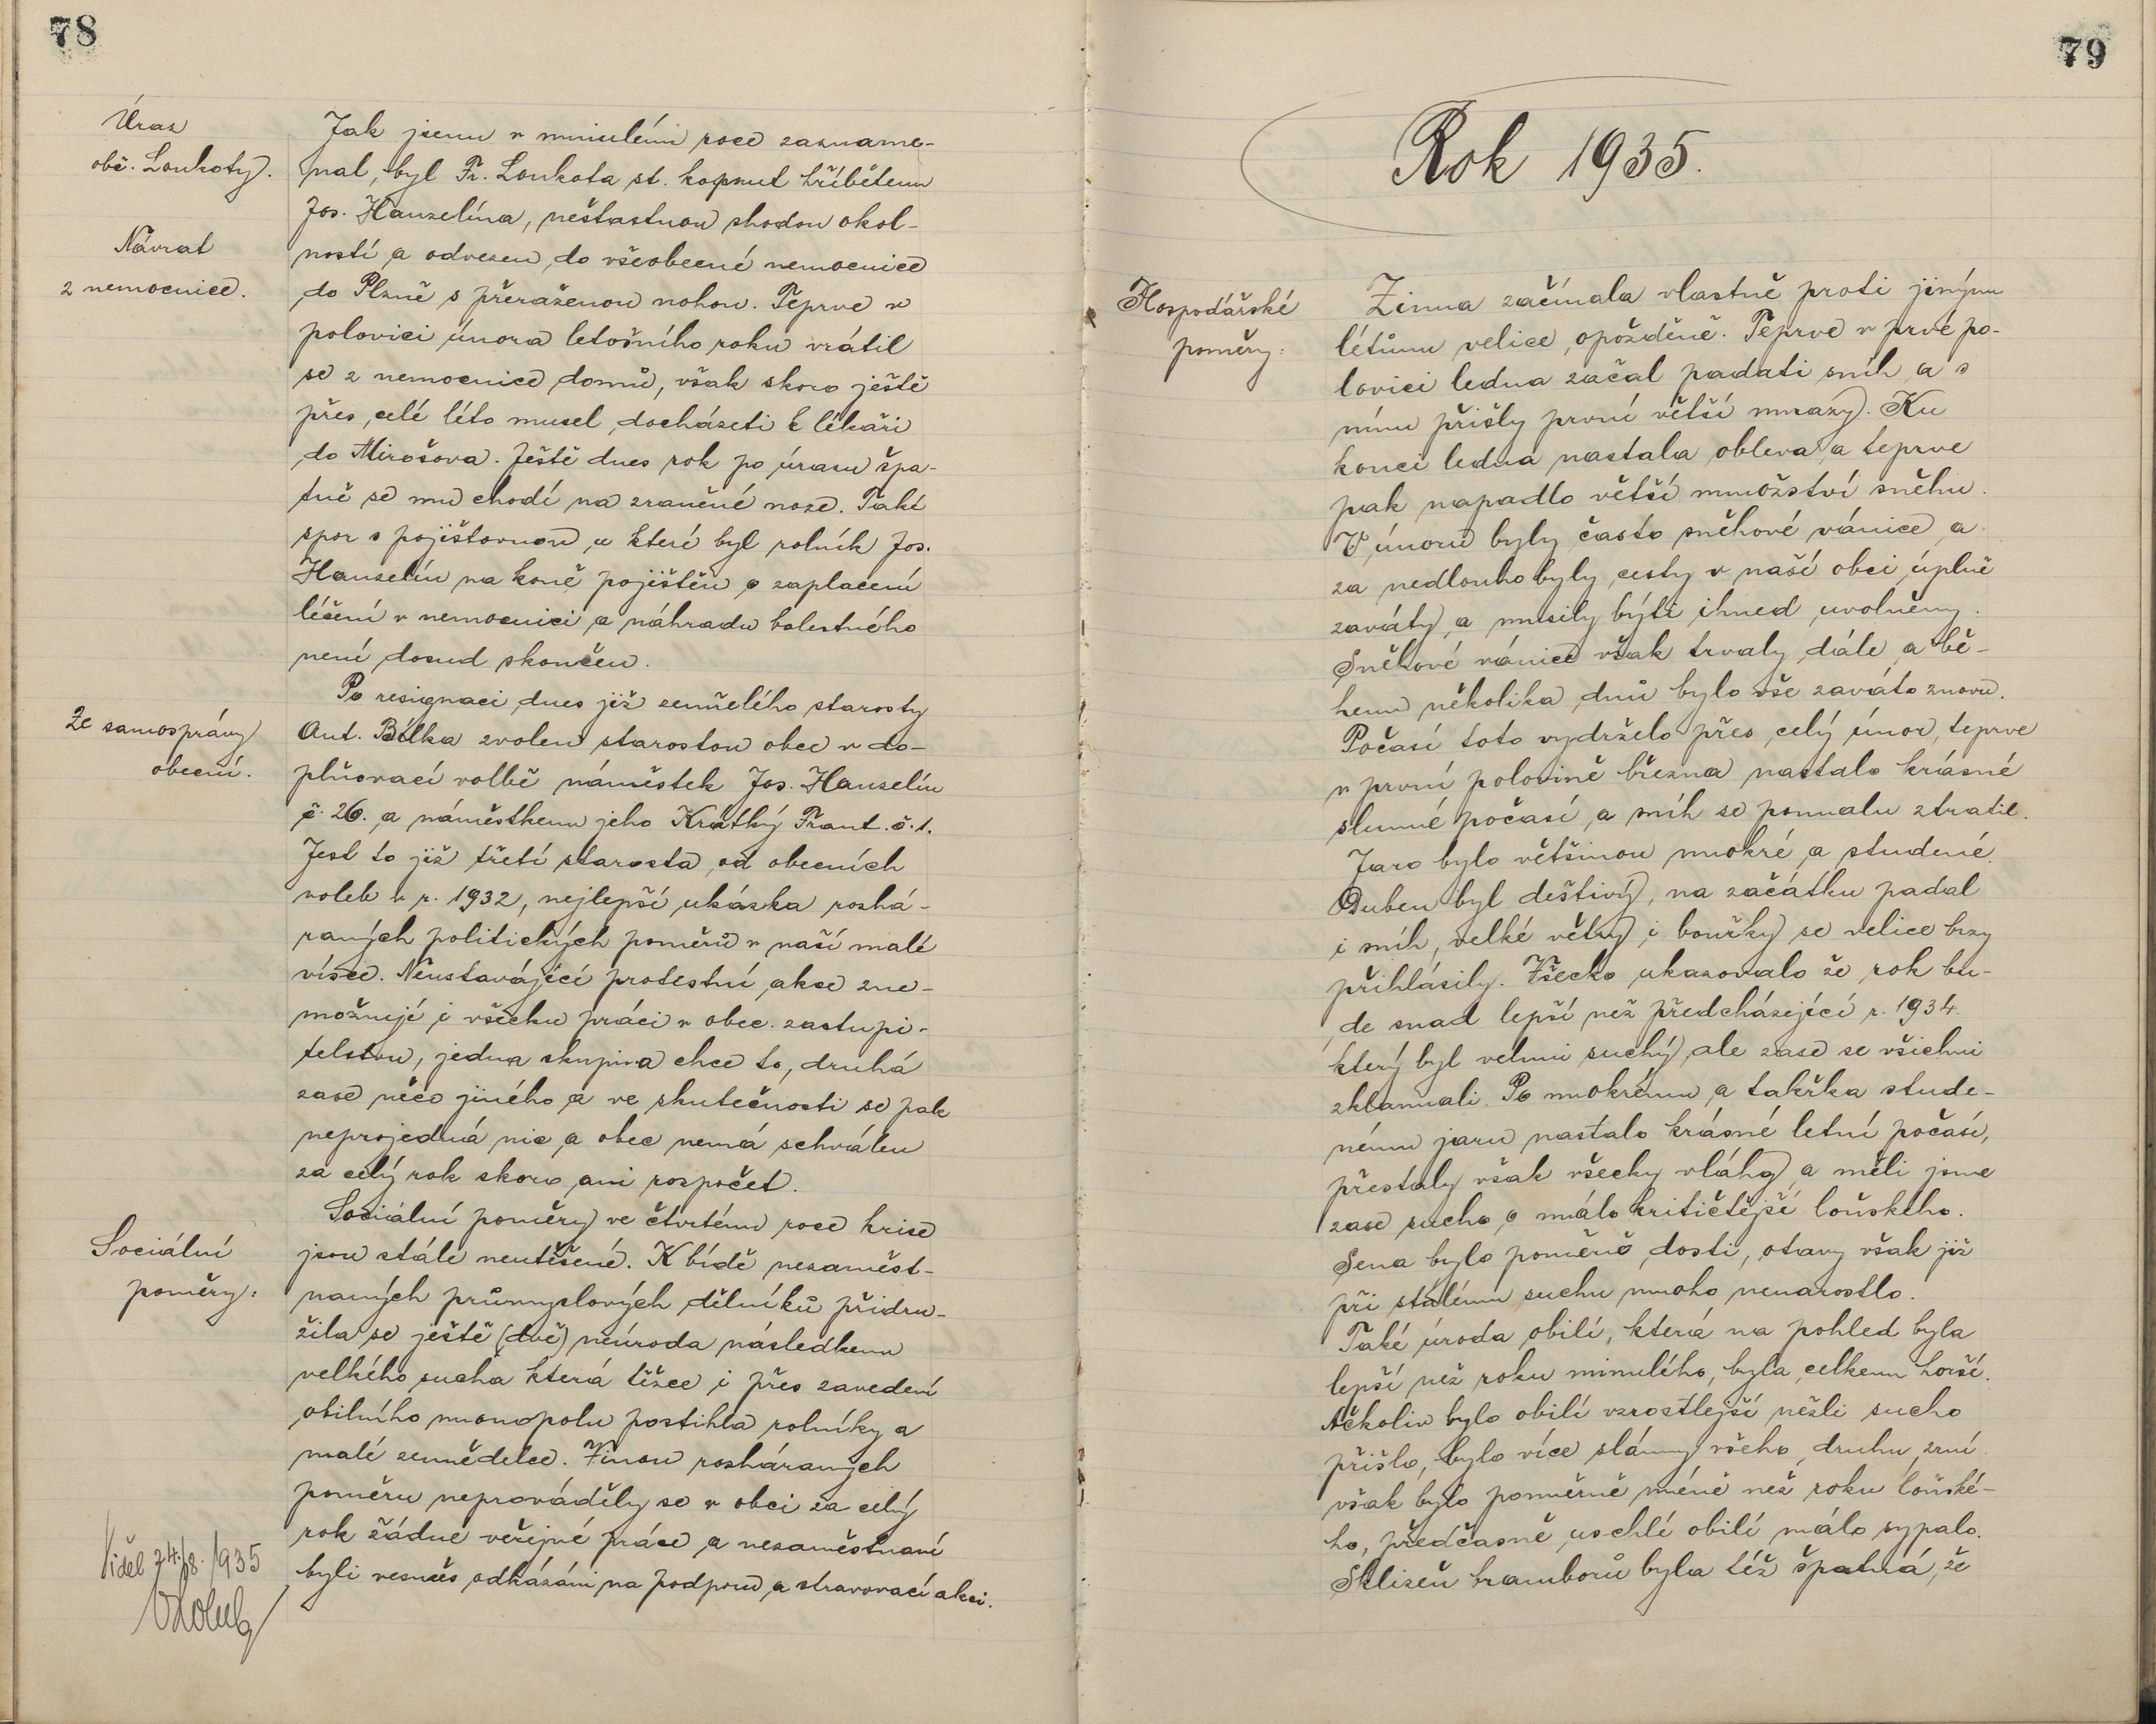 78
Úraz
obč. Loukoty.
Návrat
z nemocnice.
Jak jsem v minulém roce zazname-
nal, byl Fr. Loukota st. kopnut hříbětem
Jos. Hanzelína, nešťastnou shodou okol-
ností a odvezen do všeobecné nemocnice
do Plzně s přeraženou nohou. Teprve v
polovici února letošního roku vrátil
se z nemocnice domů, však skoro ještě
přes celé léto musel docházeti k lékaři
do Mirošova. Ještě dnes rok po úrazu špa-
tně se mu chodí na zraněné noze. Také
spor s pojišťovnou u které byl rolník Jos.
Hanzelín na koně pojištěn o zaplacení
léčení v nemocnici a náhradu bolestného
není dosud skončen.
Ze samosprávy
obecní.
Po resignaci dnes již zemřelého starosty
Ant. Bílka zvolen starostou obce v do-
plňovací volbě náměstek Jos. Hanzelín
č. 26. a náměstkem jeho Krátký Frant. č. 1.
Jest to již třetí starosta od obecních
voleb v r. 1932, nejlepší ukázka rozhá-
raných politických poměrů v naší malé
vísce. Neustavájící protestní akse zne-
možnují i všecku práci v obec. zastupi-
telstvu, jedna skupina chce to, druhá
zase něco jiného a ve skutečnosti se pak
neprojedná nic a obec nemá schválen
za celý rok skoro ani rozpočet.
Sociální
poměry:
Sociální poměry ve čtvrtém roce krise
jsou stále neutěšené. K bídě nezaměst-
naných průmyslových dělníků přidru-
žila se ještě (dvě) neúroda následkem
velkého sucha která těžce i přes zavedení
obilního monopolu postihla rolníky a
malé zemědelce. Vinou rozháraných
poměru neprováděly se v obci za celý
rok žádne veřejné práce a nezaměstnaní
byli vesměs odkázáni na podporu a stravovací akci.
Viděl 24./8. 1935
79
Rok 1935.
Hospodářské
poměry:
Zima začínala vlastně proti jiným
létům velice opožděně. Teprve v prvé po-
lovici ledna začal padati sníh a s
ním přišly první větší mrazy. Ku
konci ledna nastala obleva a teprve
pak napadlo větší množství sněhu.
V únoru byly často sněhové vánice a
za nedlouho byly cesty v naší obci úplně
zaváty a musily býti ihned uvolněny.
Sněhové vánice však trvaly dále a bě-
hem několika dnů bylo vše zaváto znovu.
Počasí toto vydrželo přes celý únor, teprve
v první polovině března nastalo krásné
slunné počasí a sníh se pomalu ztratil.
Jaro bylo většinou mokré a studené.
Duben byl deštivý, na začátku padal
i sníh, velké větry i bouřky se velice brzy
přihlásily. Všecko ukazovalo že rok bu-
de snad lepší než předcházející r. 1934.
který byl velmi suchý, ale zase se všichni
zklamali. Po mokrém a takřka stude-
ném jaru nastalo krásné letní počasí,
přestaly však všecky vláhy a měli jsme
zase sucho o málo kritičtější loňského.
Sena bylo poměrně dosti, otavy však již
při stálém suchu mnoho nenarostlo.
Také úroda obilí, která na pohled byla
lepší než roku minulého, byla celkem horší.
Ačkoliv bylo obilí vzrostlejší nežli sucho
přišlo, bylo více slámy všeho druhu, zrní
však bylo poměrně méně než roku loňské-
ho, předčasně uschlé obilí málo sypalo.
Sklizeň bramborů byla též špatná, že